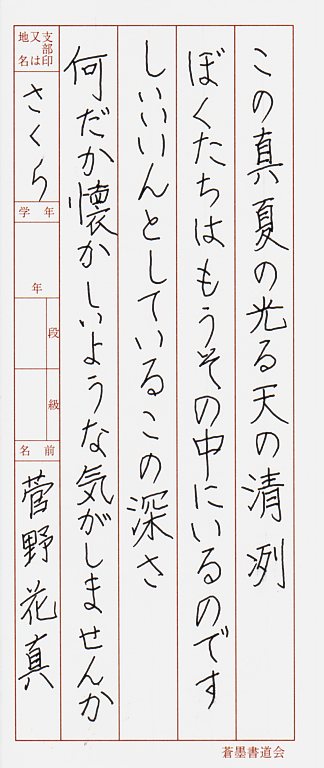 この真夏の光る天の清冽
ぼくたちはもうその中にいるのです
しいいんとしているこの深さ
何だか懐かしいような気がしませんか
支部印又は地名
さくら
学年
年
段
級
名前
菅野花真
蒼墨書道会